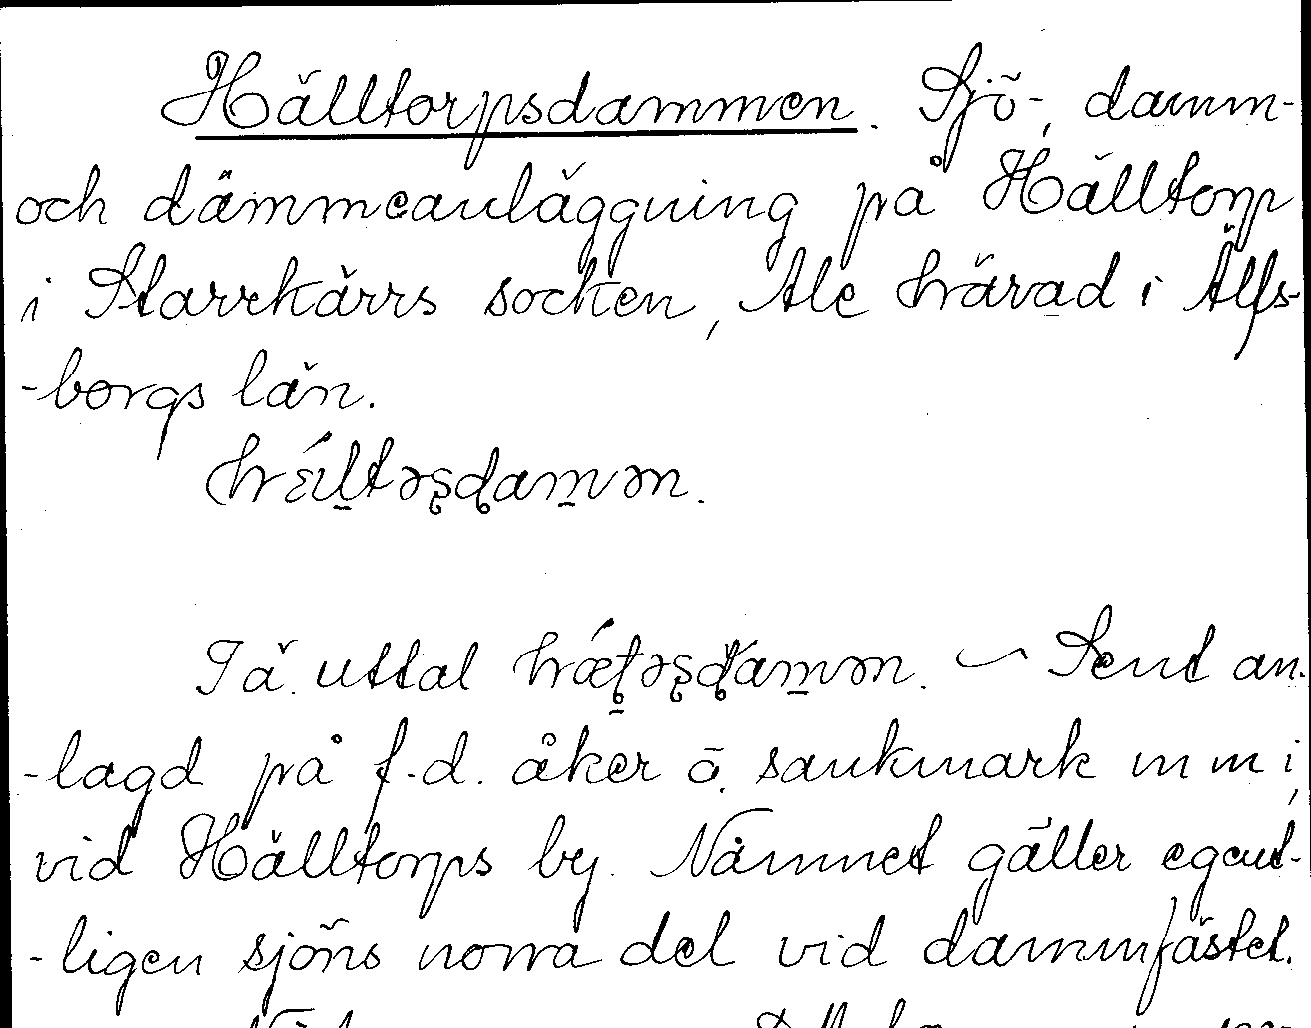 Hälltorpsdammen. Sjö-, damm-
och dämmeanläggning på Hälltorp
i Starrkärrs socken, Ale härad i Älfs-
-borgs län.
Tä. uttal
~ Sent an-
-lagd på f.d. åker ö. sankmark m m i,
vid Hälltorps by. Nämnet gäller egent-
-ligen sjöns norra del vid dammfästet.